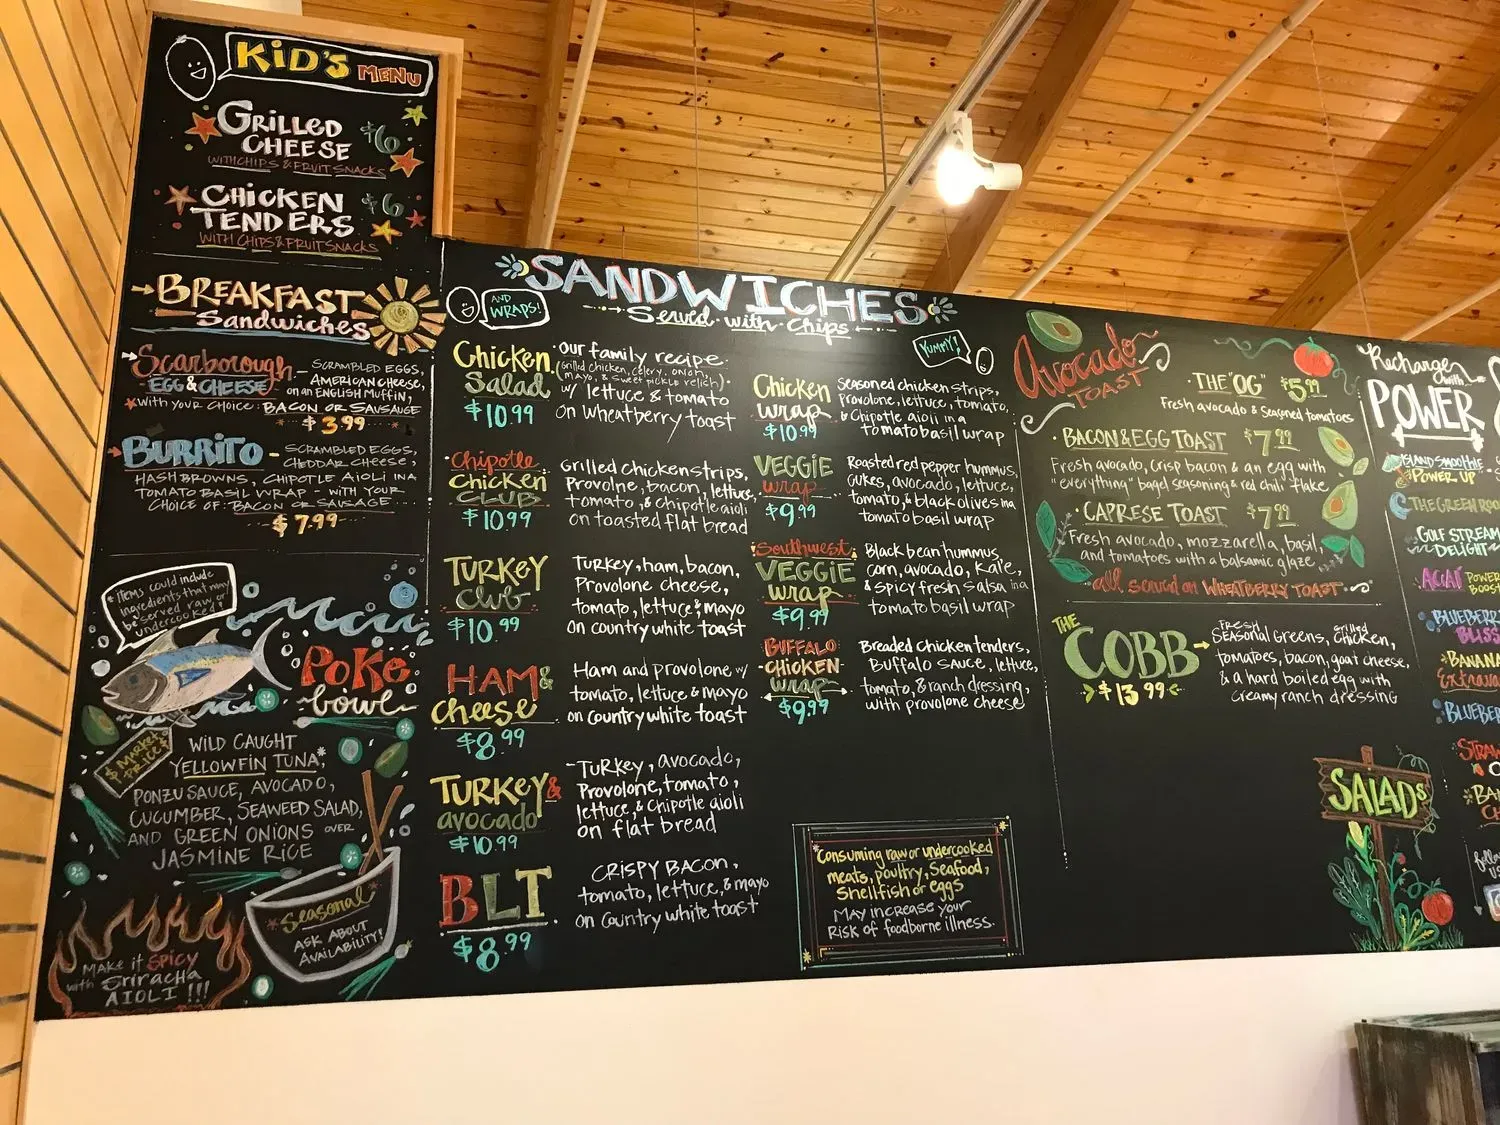 KID'S MENU
GRILLED
CHEESE
$6
WITH CHIPS & FRUIT SNACKS
CHICKEN
TENDERS
$6
WITH CHIPS & FRUIT SNACKS
BREAKFAST
Sandwiches
Scarborough
EGG & CHEESE
SCRAMBLED EGGS,
AMERICAN CHEESE,
ON AN ENGLISH MUFFIN,
*WITH YOUR CHOICE: BACON OR SAUSAUGE
$3.99
BURRITO
- SCRAMBLED EGGS,
CHEDDAR CHEESE,
HASH BROWNS, CHIPOTLE AIOLI IN A
TOMATO BASIL WRAP - WITH YOUR
CHOICE OF: BACON OR SAUSAGE
$7.99
*Items could include
ingredients that may
be served raw or
undercooked!
POKE
bowl
$ MARKET
PRICE $
WILD CAUGHT
YELLOWFIN TUNA*,
PONZU SAUCE, AVOCADO,
CUCUMBER, SEAWEED SALAD,
AND GREEN ONIONS OVER
JASMINE RICE
*Seasonal*
ASK ABOUT
AVAILABILITY!
MAKE it SPICY
with SriracHa
AIOLI!!!
SANDWICHES
AND
WRAPS!
Served with chips
YUMMY!
Chicken
Salad
$10.99
our family recipe
(Grilled chicken, celery, onion,
mayo, & sweet pickle relish)
w/ lettuce & tomato
on wheatberry toast
Chipotle
Chicken
CLUB
$10.99
Grilled Chicken strips,
Provolne, bacon, lettuce,
tomato, & chipotle aioli
on toasted flat bread
TURKEY
club
$10.99
Turkey, ham, bacon,
Provolone cheese,
tomato, lettuce & mayo
on country white toast
HAM &
cheese
$8.99
Ham and provolone w/
tomato, lettuce & mayo
on country white toast
TURKEY &
avocado
$10.99
-Turkey, avocado,
Provolone, tomato,
lettuce, & chipotle aioli
on flat bread
BLT
$8.99
CRISPY BACON,
tomato, lettuce, & mayo
on country white toast
Chicken
wrap
$10.99
Seasoned chicken strips,
provolone, lettuce, tomato,
& Chipotle aioli in a
tomato basil wrap
VEGGIE
wrap
$9.99
Roasted red pepper hummus,
cukes, avocado, lettuce,
tomato, & black olives in a
tomato basil wrap
Southwest
VEGGIE
wrap
$9.99
Black bean hummus,
corn, avocado, kale,
& spicy fresh salsa in a
tomato basil wrap
BUFFALO
-CHICKEN-
wrap
$9.99
Breaded chicken tenders,
BUFFALO SAUCE, lettuce,
tomato, & ranch dressing,
with provolone cheese
*Consuming raw or undercooked
meats, poultry, Seafood,
Shellfish or eggs
MAY increase your
Risk of foodborne illness.
Avocado
TOAST
• THE "OG" $5.99
Fresh avocado & seasoned tomatoes
• BACON & EGG TOAST $7.99
Fresh avocado, crisp bacon & an egg with
"everything" bagel seasoning & red chili flake
• CAPRESE TOAST $7.99
Fresh avocado, mozzarella, basil,
and tomatoes with a balsamic glaze
all served on WHEATBERRY TOAST
THE
COBB
$13.99
FRESH
SEASONAL Greens, Grilled Chicken,
tomatoes, bacon, goat cheese,
& a hard boiled egg with
creamy ranch dressing
SALADS
Recharge with
POWER
ISLAND SMOOTHIE
POWER UP
THE GREEN
GULF STREAM
DELIGHT
ACAI POWER
BOOST
BLUEBERRY
BLISS
BANANA